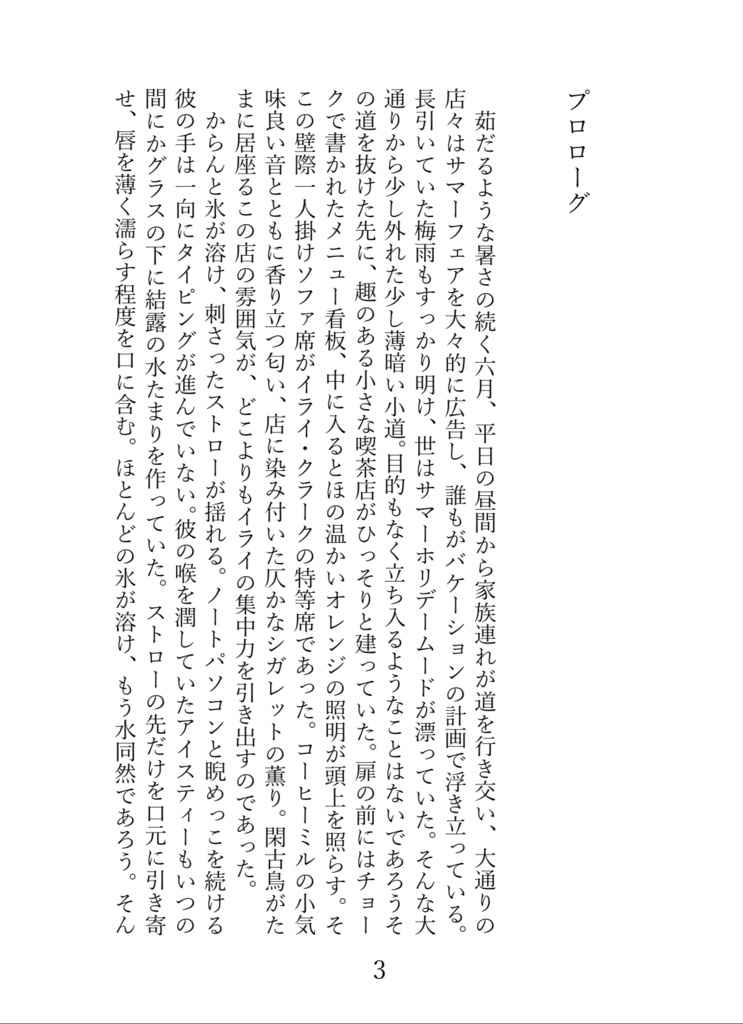 プロローグ
茹だるような暑さの続く六月、平日の昼間から家族連れが道を行き交い、大通りの
店々はサマーフェアを大々的に広告し、誰もがバケーションの計画で浮き立っている。
長引いていた梅雨もすっかり明け、世はサマーホリデームードが漂っていた。そんな大
通りから少し外れた少し薄暗い小道。目的もなく立ち入るようなことはないであろうそ
の道を抜けた先に、趣のある小さな喫茶店がひっそりと建っていた。扉の前にはチョー
クで書かれたメニュー看板、中に入るとほの温かいオレンジの照明が頭上を照らす。そ
この壁際一人掛けソファ席がイライ・クラークの特等席であった。コーヒーミルの小気
味良い音とともに香り立つ匂い、店に染み付いた仄かなシガレットの薫り。閑古鳥がた
まに居座るこの店の雰囲気が、どこよりもイライの集中力を引き出すのであった。
からんと氷が溶け、刺さったストローが揺れる。ノートパソコンと睨めっこを続ける
彼の手は一向にタイピングが進んでいない。彼の喉を潤していたアイスティーもいつの
間にかグラスの下に結露の水たまりを作っていた。ストローの先だけを口元に引き寄
せ、唇を薄く濡らす程度を口に含む。ほとんどの氷が溶け、もう水同然であろう。そん
3